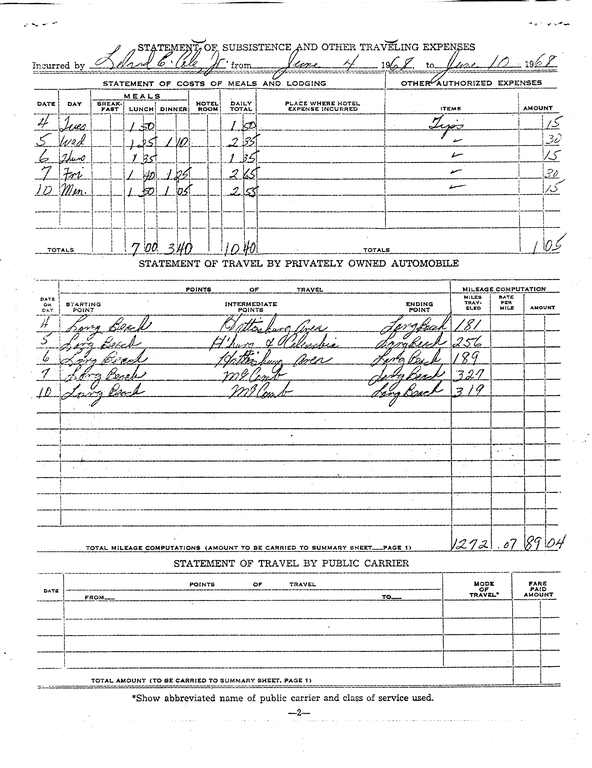 STATEMENT OF SUBSISTENCE AND OTHER TRAVELING EXPENSES
Incurred by Leland E. Cole, Jr. from June 4 1968, to June 10 1968
STATEMENT OF COSTS OF MEALS AND LODGING OTHER AUTHORIZED EXPENSES
DATE DAY MEALS BREAK-FAST LUNCH DINNER HOTEL ROOM DAILY TOTAL PLACE WHERE HOTEL EXPENSE INCURRED ITEMS AMOUNT
4 Tues 1 50 1 50 Tips 15
5 Wed 1 25 1 10 2 35 30
6 Thurs 1 35 1 35 15
7 Fri 1 40 1 25 2 65 30
10 Mon. 1 50 1 05 2 55 15
TOTALS 7 00 3 40 10 40 TOTALS 1 05
STATEMENT OF TRAVEL BY PRIVATELY OWNED AUTOMOBILE
POINTS OF TRAVEL MILEAGE COMPUTATION
DATE OR DAY STARTING POINT INTERMEDIATE POINTS ENDING POINT MILES TRAV-ELED RATE PER MILE AMOUNT
4 Long Beach Hattiesburg Area Long Beach 181
5 Long Beach H'burg & Columbia Long Beach 256
6 Long Beach Hattiesburg Area Long Beach 189
7 Long Beach McComb Long Beach 327
10 Long Beach McComb Long Beach 319
TOTAL MILEAGE COMPUTATIONS (AMOUNT TO BE CARRIED TO SUMMARY SHEET PAGE 1) 1272 .07 89 04
STATEMENT OF TRAVEL BY PUBLIC CARRIER
DATE POINTS OF TRAVEL MODE OF TRAVEL* FARE PAID AMOUNT
FROM TO
TOTAL AMOUNT (TO BE CARRIED TO SUMMARY SHEET, PAGE 1)
*Show abbreviated name of public carrier and class of service used.
—2—